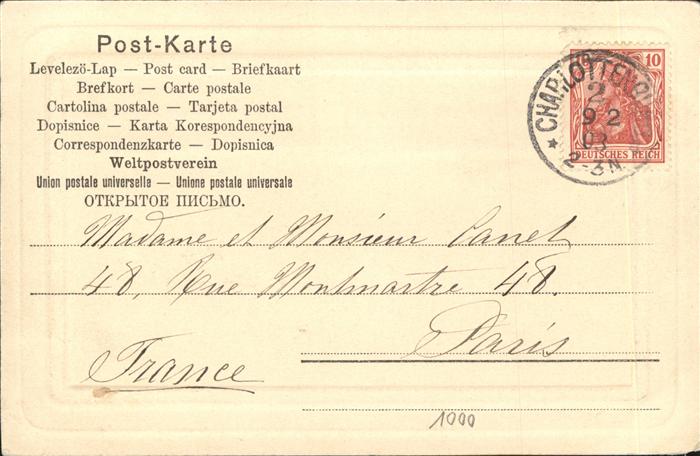 Post-Karte
Levelezö-Lap — Post card — Briefkaart
Brefkort — Carte postale
Cartolina postale — Tarjeta postal
Dopisnice — Karta Korespondencyjna
Correspondenzkarte — Dopisnica
Weltpostverein
Union postale universelle — Unione postale universale
ОТКРЫТОЕ ПИСЬМО.
10
DEUTSCHES REICH
2
9 2
03
2-3N.
Madame et Monsieur Canet
48, Rue Montmartre 48.
Paris
France
1000